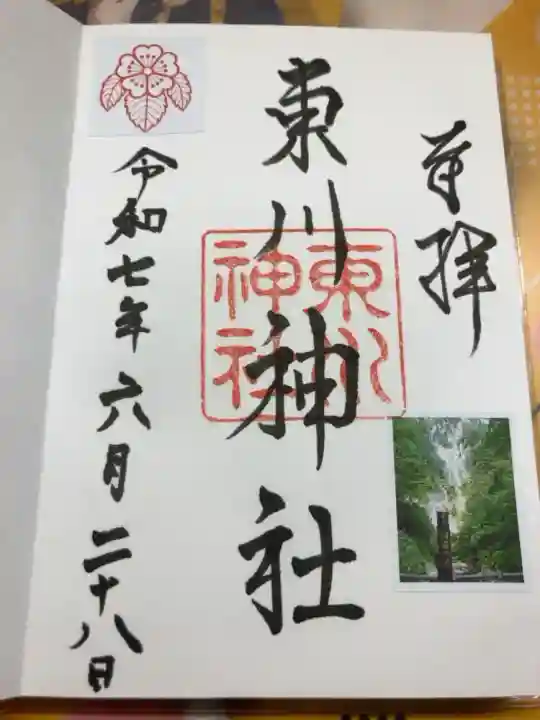 奉拝
東川神社
東川神社
令和七年六月二十八日